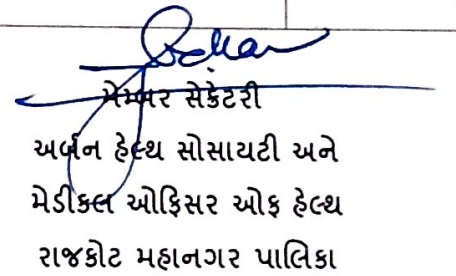 મેમ્બર સેક્રેટરી
અર્બન હેલ્થ સોસાયટી અને
મેડીકલ ઓફિસર ઓફ હેલ્થ
રાજકોટ મહાનગર પાલિકા